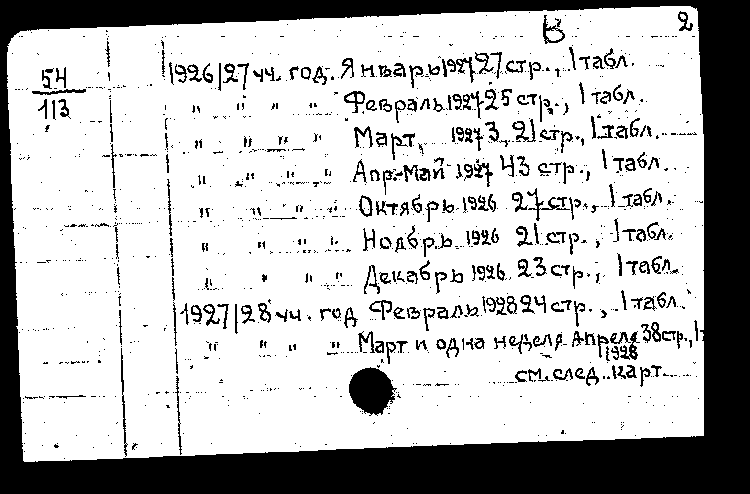 В 2
54
113
1926/27 уч. год. Январь 1927 27 стр., 1 табл.
" " " " Февраль 1927 25 стр., 1 табл.
" " " " Март, 1927 3, 21 стр., 1 табл.
" " " " Апр.-Май 1927 43 стр., 1 табл.
" " " " Октябрь 1926 27 стр., 1 табл.
" " " " Ноябрь 1926 21 стр., 1 табл.
" " " " Декабрь 1926 23 стр., 1 табл.
1927/28 уч. год Февраль 1928 24 стр., 1 табл.
" " " " Март и одна неделя Апреля 38 стр., 1 т
1928
см. след. карт.